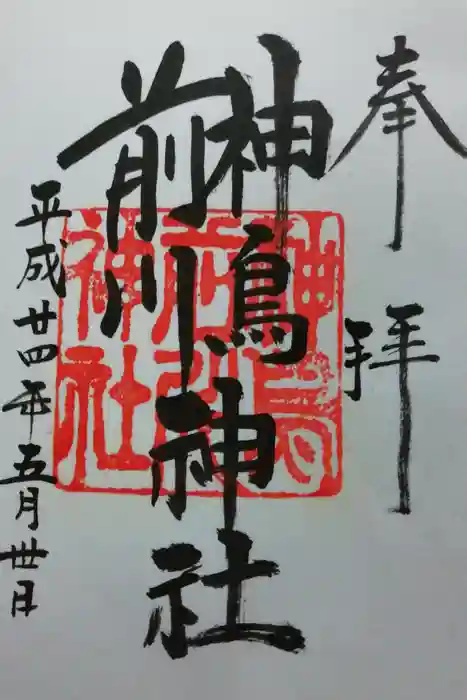 奉拝
神鳥
前川
神社
平成廿四年五月丗日
神鳥
前川
神社